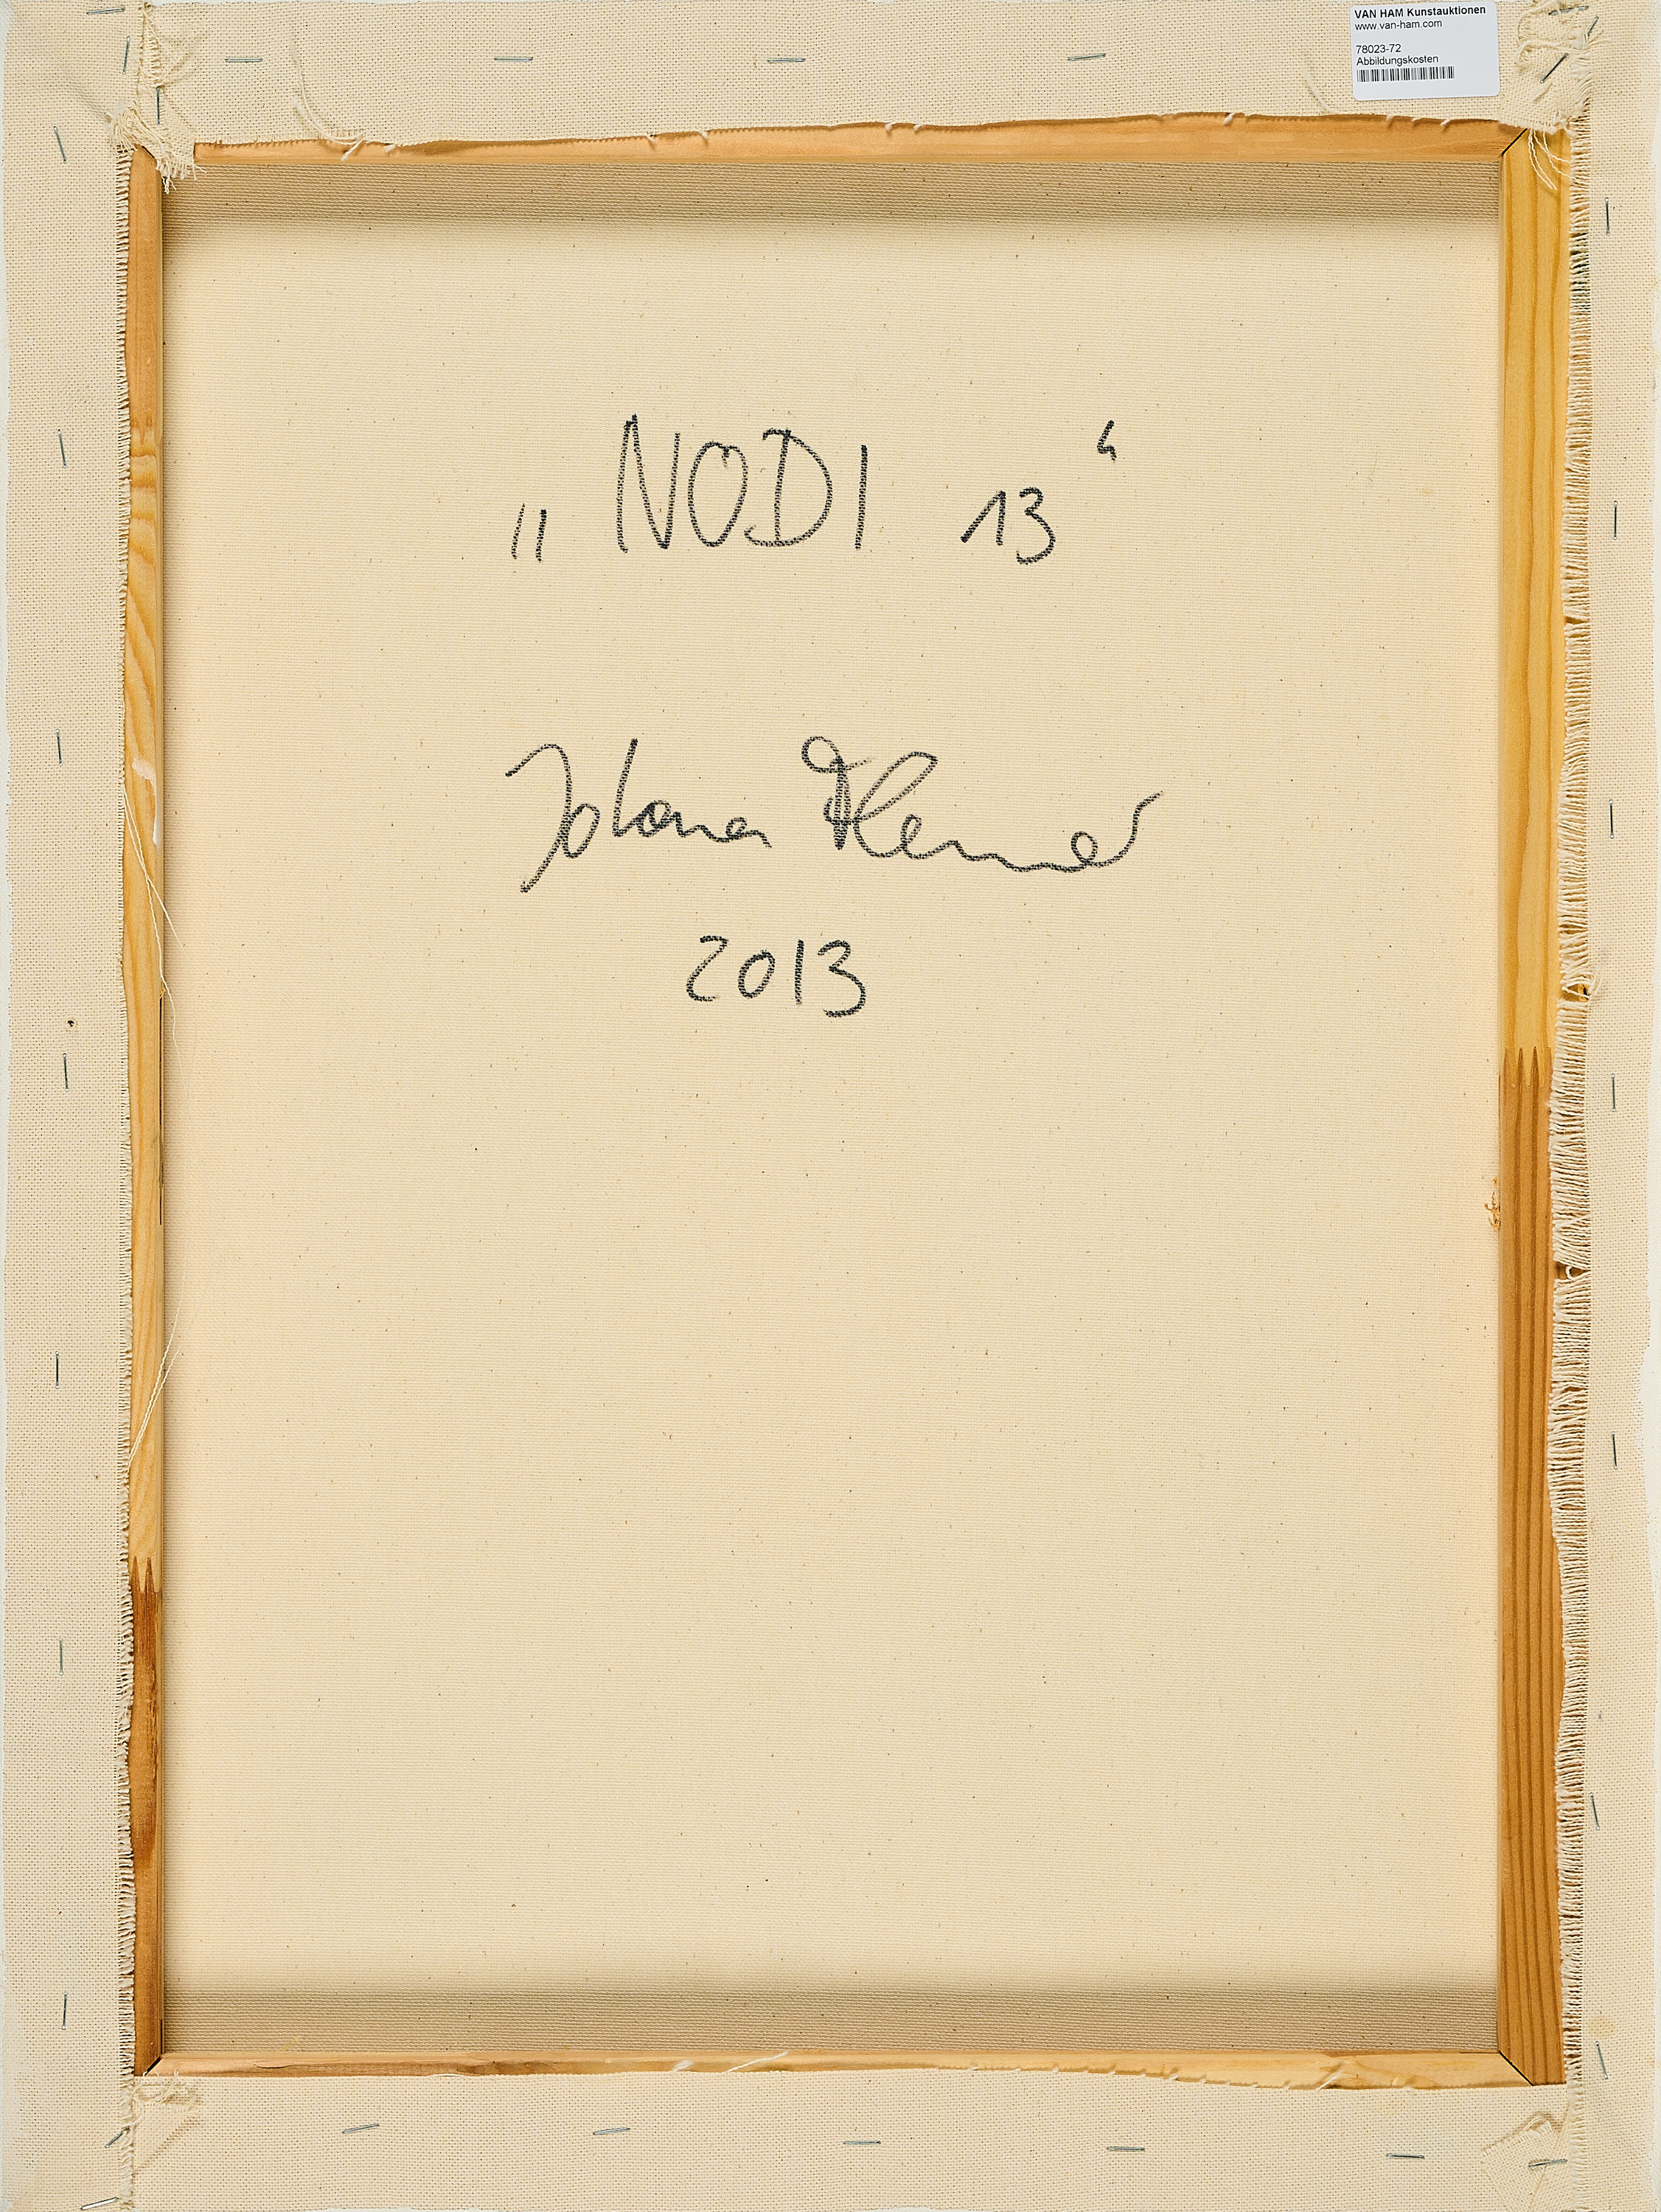 VAN HAM Kunstauktionen
www.van-ham.com
78023-72
Abbildungskosten
„NODI 13“
2013